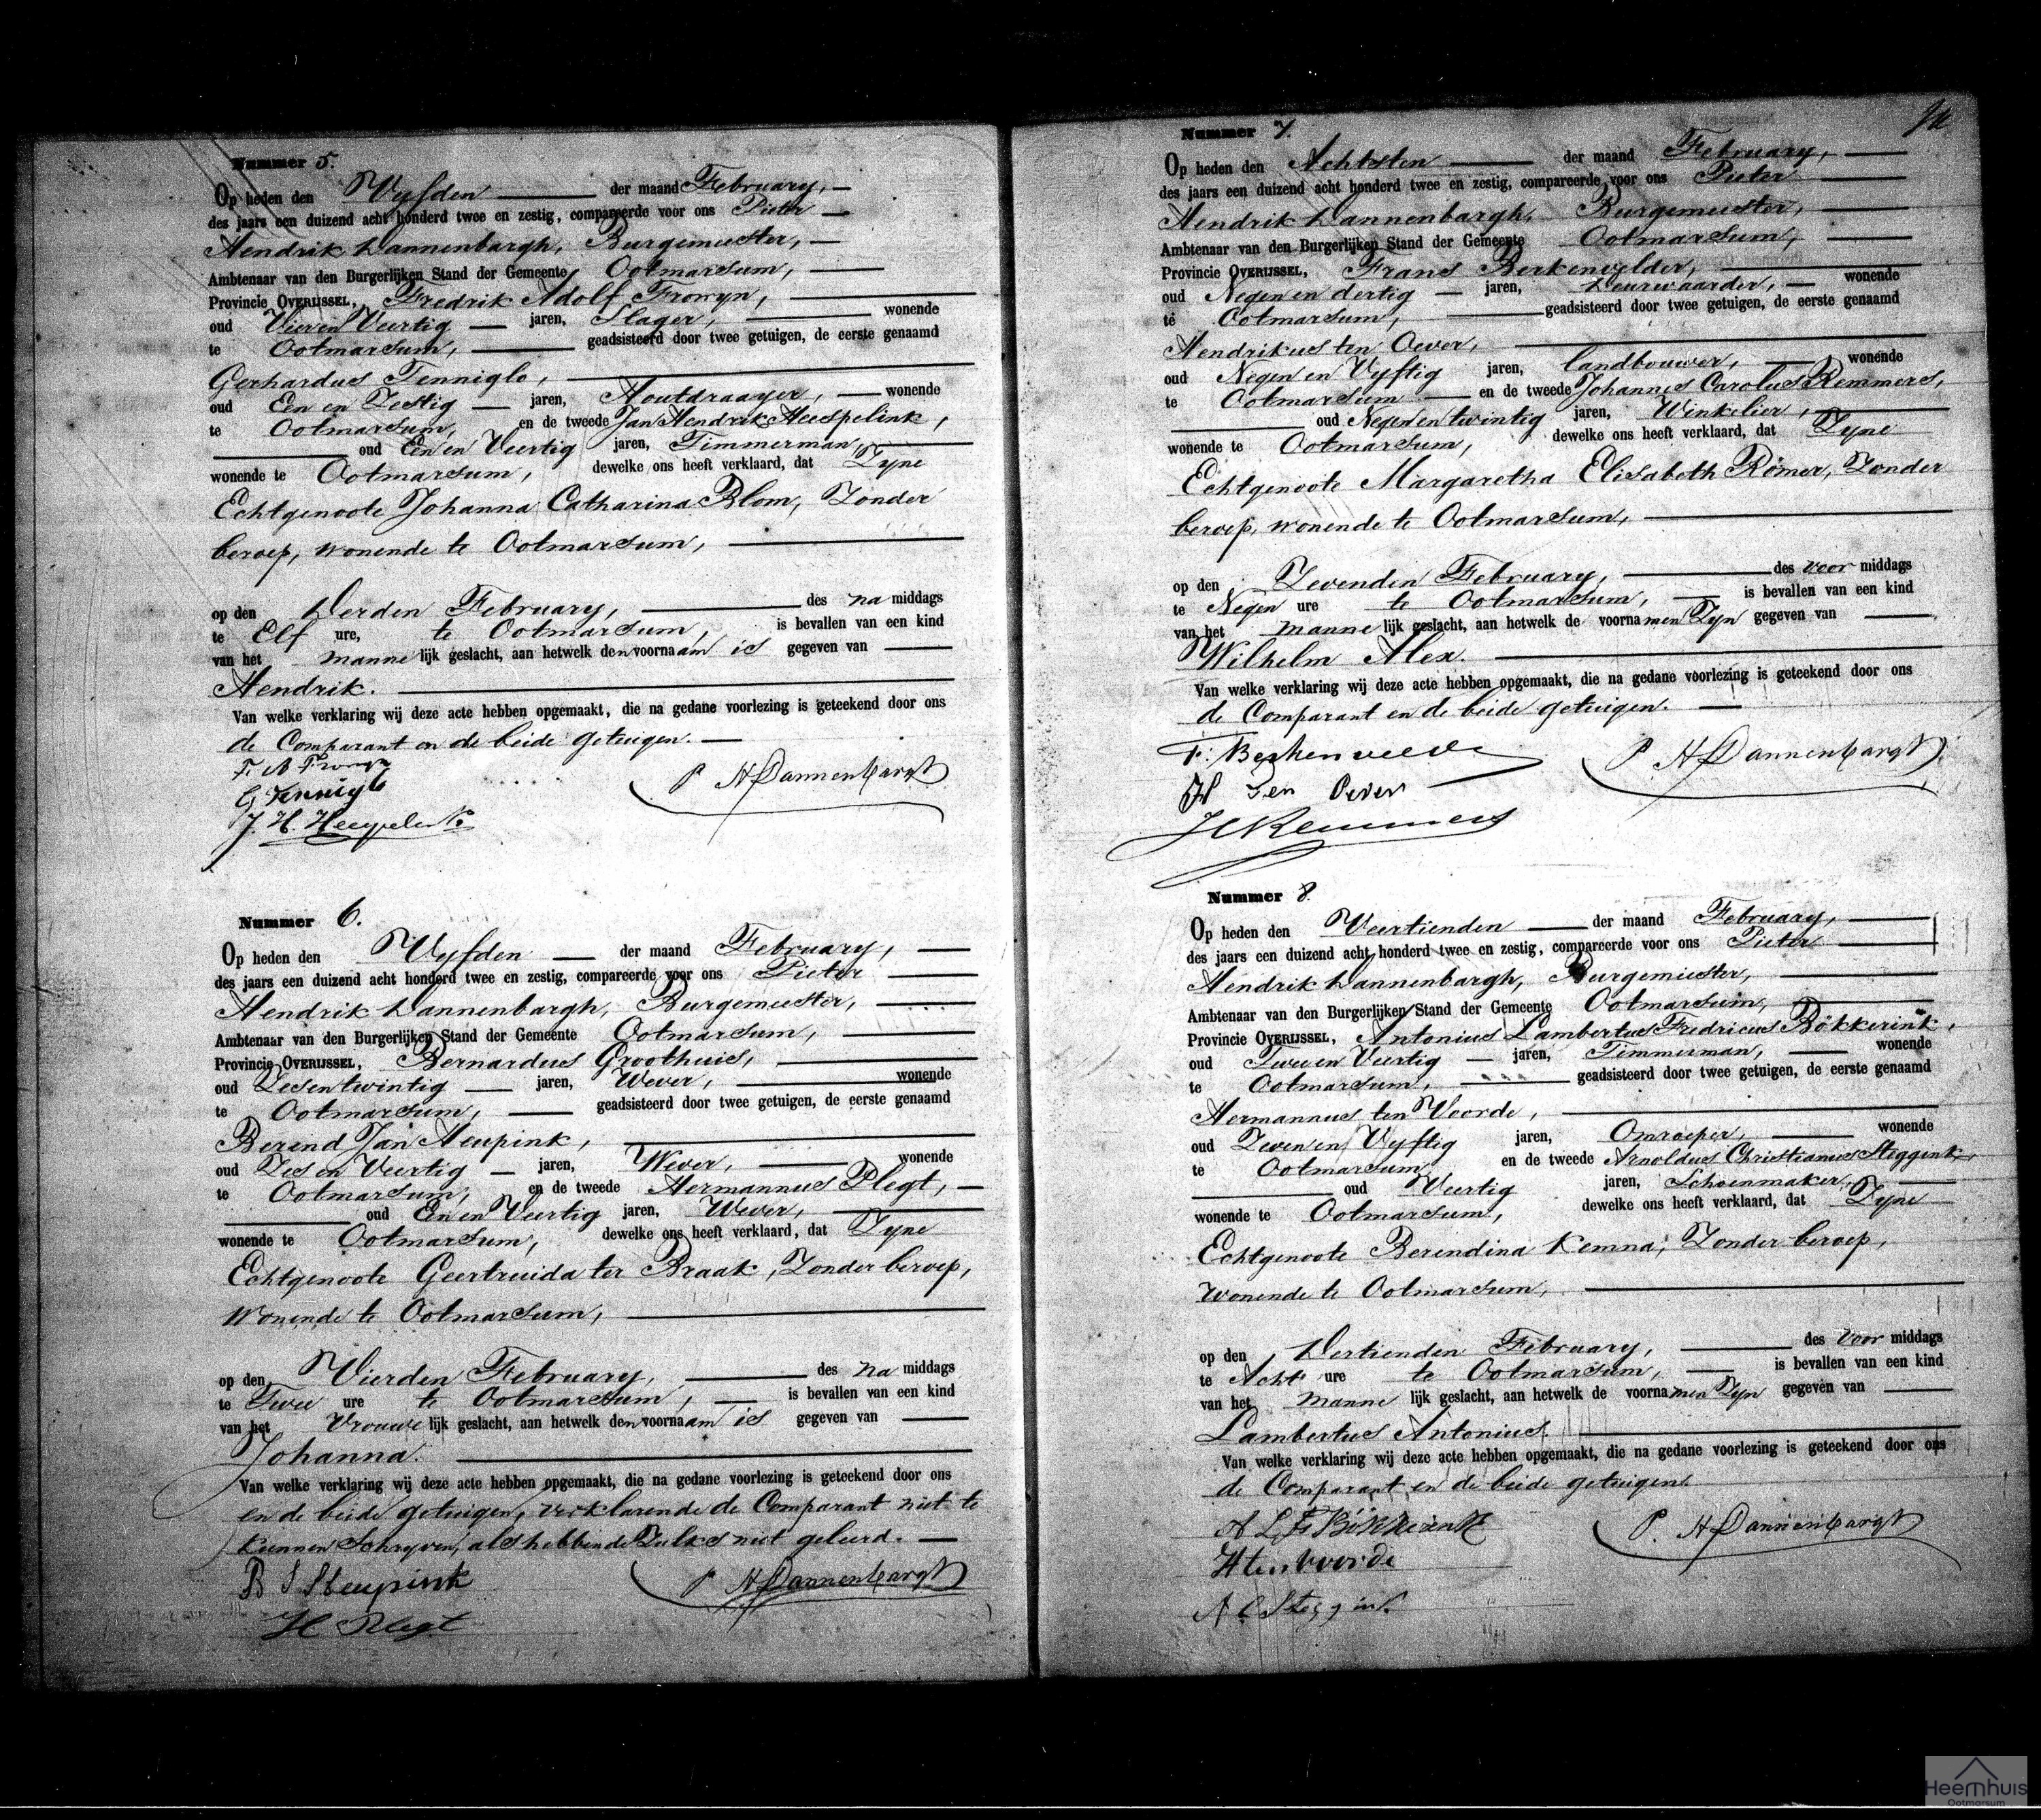 Nummer 5.
Op heden den Vyfden der maand February,
des jaars een duizend acht honderd twee en zestig, compareerde voor ons Pieter
Hendrik Dannenbargh, Burgemeester,
Ambtenaar van den Burgerlijken Stand der Gemeente Ootmarsum,
Provincie OVERIJSSEL, Fredrik Adolf Frowyn,
oud Vier en Veertig jaren, Slager, wonende
te Ootmarsum, geadsisteerd door twee getuigen, de eerste genaamd
Gerhardus Tenniglo,
oud Een en Zestig jaren, Houtdraayer, wonende
te Ootmarsum, en de tweede Jan Hendrik Heespelink,
oud Een en Veertig jaren, Timmerman,
wonende te Ootmarsum, dewelke ons heeft verklaard, dat Zyne
Echtgenoote Johanna Catharina Blom, Zonder
beroep, wonende te Ootmarsum,
op den Derden February, des na middags
te Elf ure, te Ootmarsum, is bevallen van een kind
van het manne lijk geslacht, aan hetwelk den voornaam is gegeven van
Hendrik.
Van welke verklaring wij deze acte hebben opgemaakt, die na gedane voorlezing is geteekend door ons
de Comparant en de beide getuigen.
F. A Frowyn
G Tenniglo
P H Dannenbargh
J. H. Heespelink
Nummer 6.
Op heden den Vyfden der maand February,
des jaars een duizend acht honderd twee en zestig, compareerde voor ons Pieter
Hendrik Dannenbargh, Burgemeester,
Ambtenaar van den Burgerlijken Stand der Gemeente Ootmarsum,
Provincie OVERIJSSEL, Bernardus Groothuis,
oud Zes en twintig jaren, Wever, wonende
te Ootmarsum, geadsisteerd door twee getuigen, de eerste genaamd
Berend Jan Heupink,
oud Zes en Veertig jaren, Wever, wonende
te Ootmarsum, en de tweede Hermannus Plegt,
oud Een en Veertig jaren, Wever,
wonende te Ootmarsum, dewelke ons heeft verklaard, dat Zyne
Echtgenoote Geertruida ter Braak, Zonder beroep,
wonende te Ootmarsum,
op den Vierden February, des na middags
te Twee ure te Ootmarsum, is bevallen van een kind
van het Vrouwe lijk geslacht, aan hetwelk den voornaam is gegeven van
Johanna.
Van welke verklaring wij deze acte hebben opgemaakt, die na gedane voorlezing is geteekend door ons
en de beide getuigen, verklarende de Comparant niet te
kunnen Schryven, als hebbende Zulks niet geleerd.
B J Heupink
P H Dannenbargh
H Plegt
Nummer 7.
Op heden den Achtsten der maand February,
des jaars een duizend acht honderd twee en zestig, compareerde voor ons Pieter
Hendrik Dannenbargh, Burgemeester,
Ambtenaar van den Burgerlijken Stand der Gemeente Ootmarsum,
Provincie OVERIJSSEL, Frans Berkenvelder,
oud Negen en dertig jaren, Deurwaarder, wonende
te Ootmarsum, geadsisteerd door twee getuigen, de eerste genaamd
Hendrikus ten Oever,
oud Negen en Vyftig jaren, landbouwer, wonende
te Ootmarsum en de tweede Johannes Carolus Remmers,
oud Negen en twintig jaren, Winkelier,
wonende te Ootmarsum, dewelke ons heeft verklaard, dat Zyne
Echtgenoote Margaretha Elisabeth Römer, Zonder
beroep, wonende te Ootmarsum,
op den Zevenden February, des voor middags
te Negen ure te Ootmarsum, is bevallen van een kind
van het manne lijk geslacht, aan hetwelk de voornamen Zyn gegeven van
Wilhelm Alex.
Van welke verklaring wij deze acte hebben opgemaakt, die na gedane voorlezing is geteekend door ons
de Comparant en de beide getuigen.
F. Berkenvelder
P H Dannenbargh
H Ten Oever
J C Remmers
Nummer 8.
Op heden den Veertienden der maand February,
des jaars een duizend acht honderd twee en zestig, compareerde voor ons Pieter
Hendrik Dannenbargh, Burgemeester,
Ambtenaar van den Burgerlijken Stand der Gemeente Ootmarsum,
Provincie OVERIJSSEL, Antonius Lambertus Fredricus Bökkerink,
oud Twee en Veertig jaren, Timmerman, wonende
te Ootmarsum, geadsisteerd door twee getuigen, de eerste genaamd
Hermannus ten Voorde,
oud Zeven en Vyftig jaren, Omroeper, wonende
te Ootmarsum, en de tweede Arnoldus Christianus Steggink,
oud Veertig jaren, Schoenmaker,
wonende te Ootmarsum, dewelke ons heeft verklaard, dat Zyne
Echtgenoote Berendina Kemna, Zonder beroep,
wonende te Ootmarsum,
op den Dertienden February, des voor middags
te Acht ure te Ootmarsum, is bevallen van een kind
van het manne lijk geslacht, aan hetwelk de voornamen Zyn gegeven van
Lambertus Antonius.
Van welke verklaring wij deze acte hebben opgemaakt, die na gedane voorlezing is geteekend door ons
de Comparant en de beide getuigen.
A L F Bökkerink
P. H Dannenbargh
H ten Voorde
A C Steggink
Heemhuis
Ootmarsum